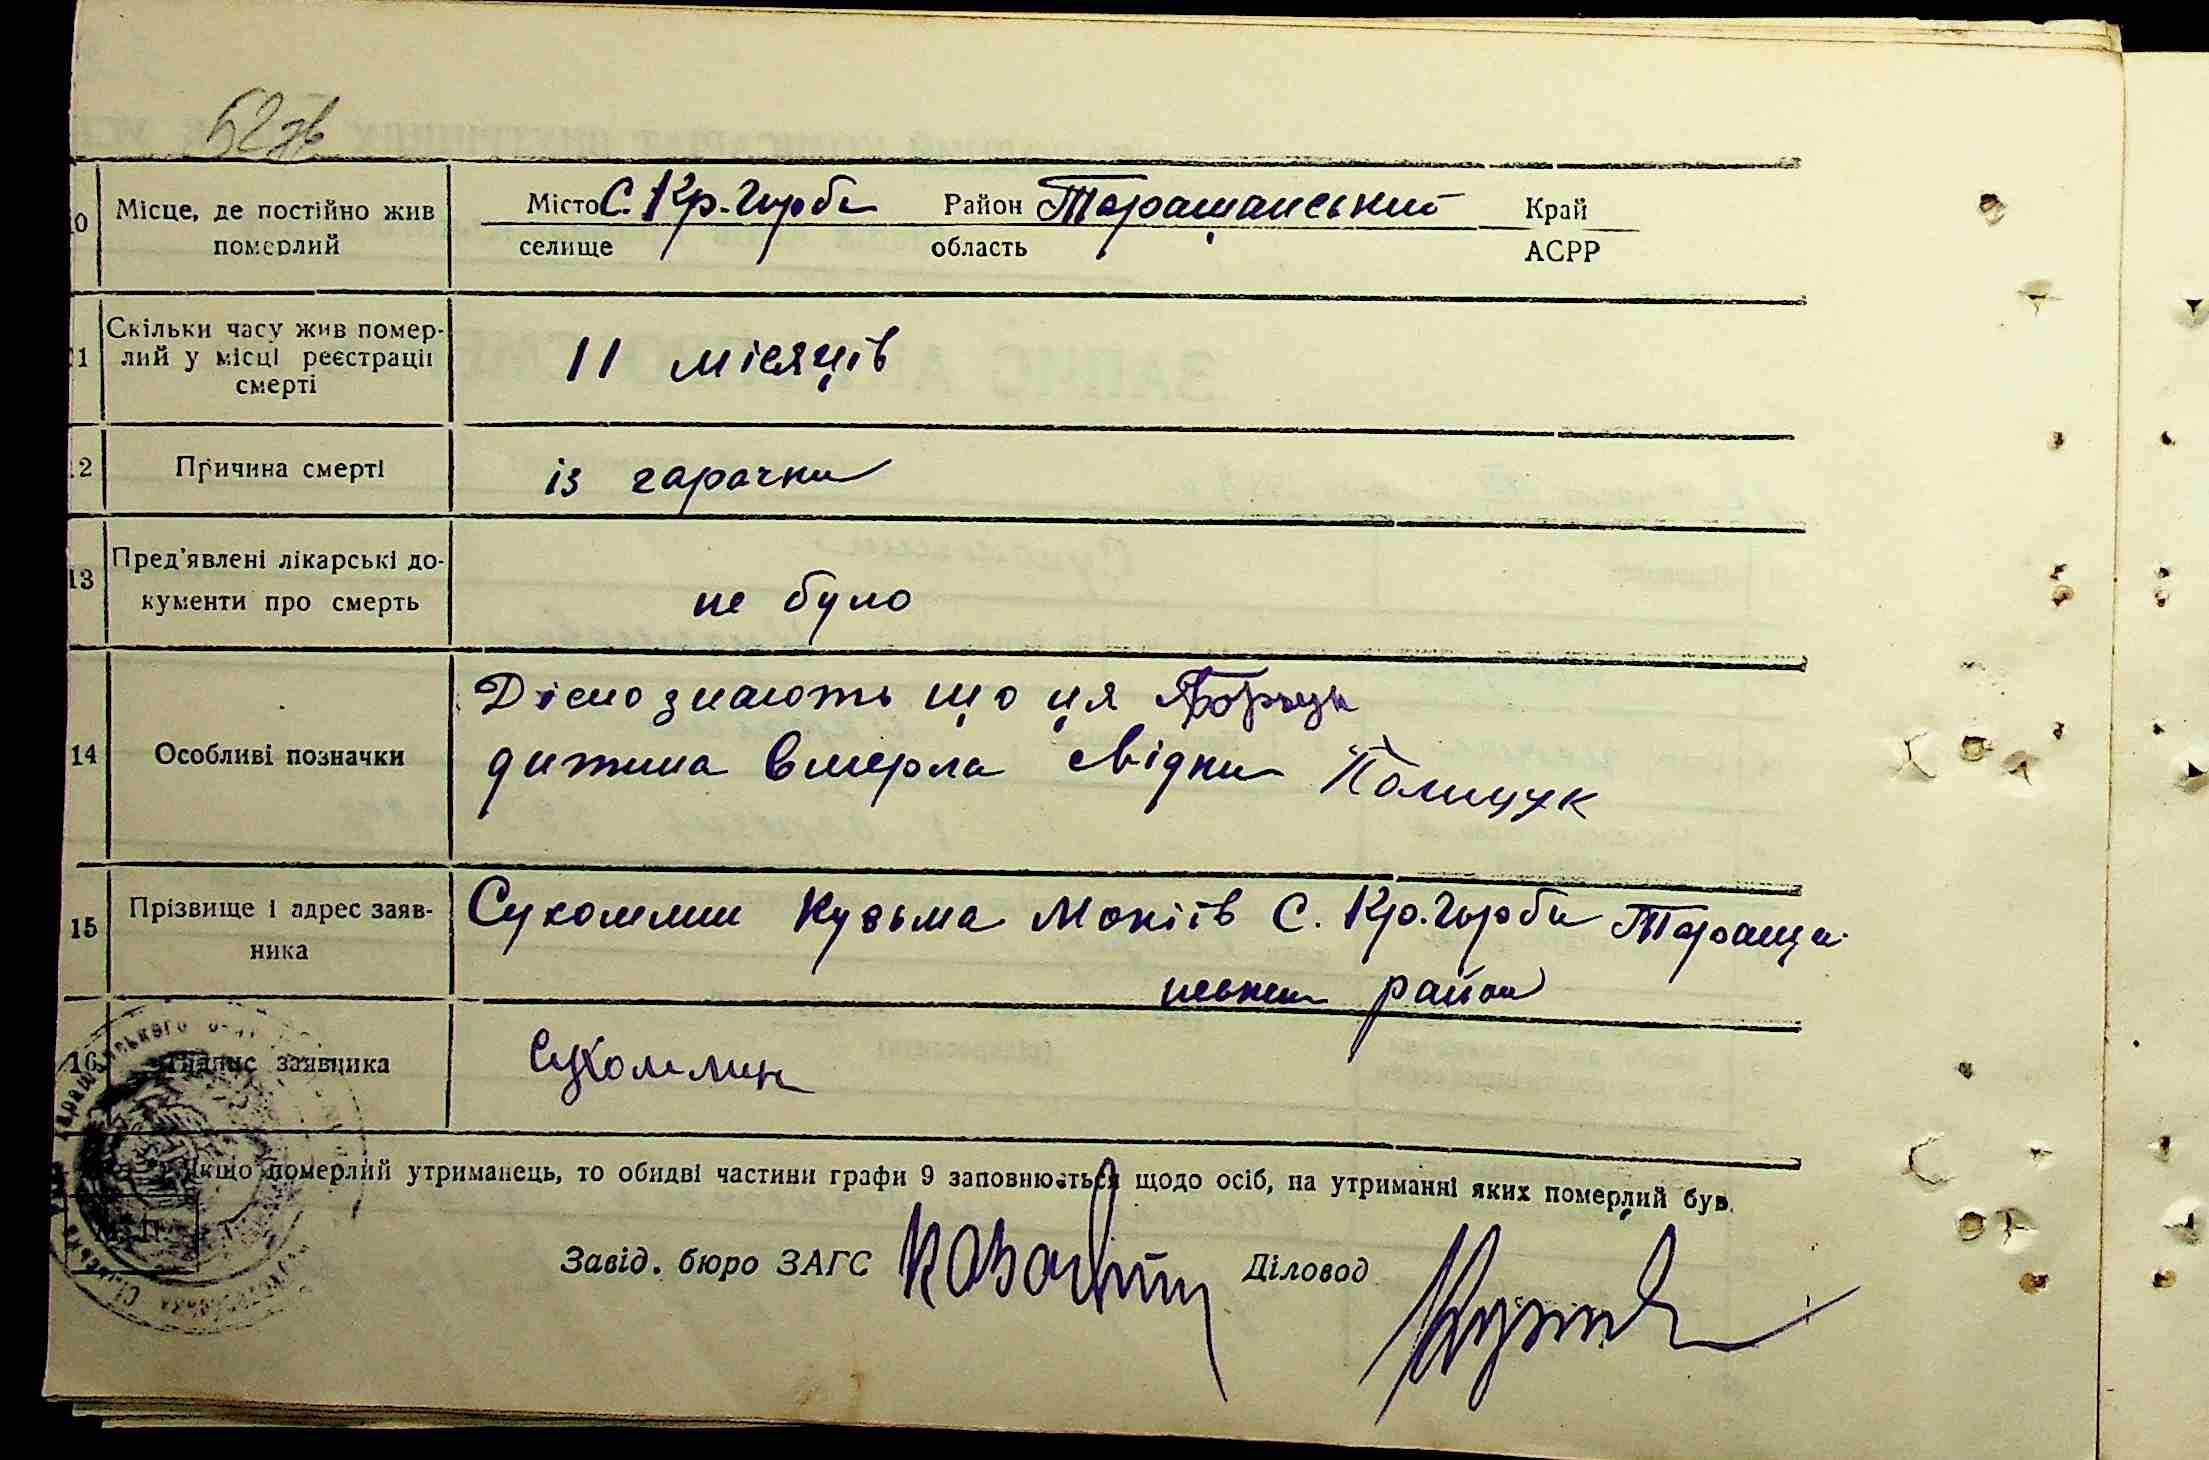 52зв
10 Місце, де постійно жив померлий
Місто С. Кр. Гирби Район Таращанський Край
селище область АСРР
11 Скільки часу жив помер-
лий у місці реєстрації
смерті
11 місяців
12 Причина смерті
із гарачки
13 Пред'явлені лікарські до-
кументи про смерть
не було
14 Особливі позначки
Дісно знають що ця
дитина вмерла свідки Полищук
15 Прізвище і адрес заяв-
ника
Сухомлин Кузьма Мокіїв С. Кр. Гирби Тараща-
нський район
16 Підпис заявника
Сухомлин
Якщо померлий утриманець, то обидві частини графи 9 заповнюється щодо осіб, на утриманні яких померлий був.
М. П.
Завід. бюро ЗАГС Діловод